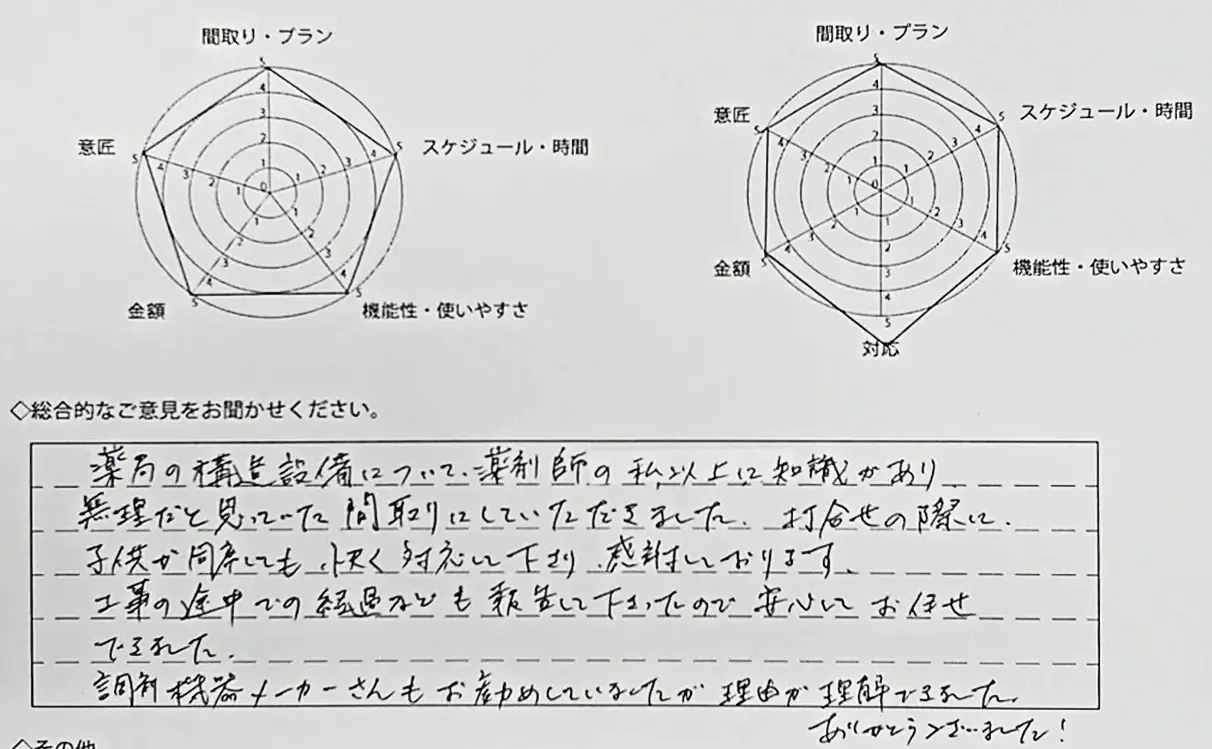 間取り・プラン
意匠
スケジュール・時間
金額
機能性・使いやすさ
5 4 3 2 1 0
1 2 3 4 5
1 2 3 4 5
1 2 3 4 5
1 2 3 4 5
間取り・プラン
意匠
スケジュール・時間
金額
機能性・使いやすさ
対応
5 4 3 2 1 0
1 2 3 4 5
1 2 3 4 5
1 2 3 4 5
1 2 3 4 5
1 2 3 4 5
◇総合的なご意見をお聞かせください。
薬局の構造設備について、薬剤師の私以上に知識があり、
無理だと思っていた間取りにしていただきました。打合せの際に、
子供が同席しても、快く対応して下さり、感謝しております。
工事の途中での経過なども報告して下さったので安心してお任せ
できました。
調剤機器メーカーさんもお勧めしていましたが理由が理解できました。
ありがとうございました!
◇その他